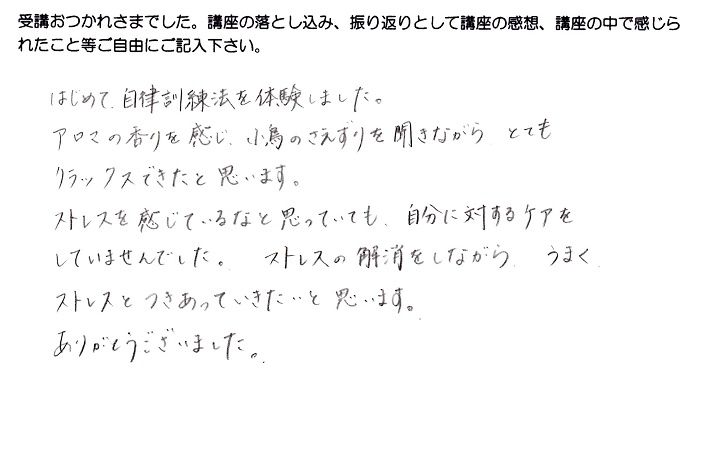 受講おつかれさまでした。講座の落とし込み、振り返りとして講座の感想、講座の中で感じら
れたこと等ご自由にご記入下さい。
はじめて、自律訓練法を体験しました。
アロマの香りを感じ、小鳥のさえずりを聞きながら、とても
リラックスできたと思います。
ストレスを感じているなと思っていても、自分に対するケアを
していませんでした。 ストレスの解消をしながら、うまく
ストレスとつきあっていきたいと思います。
ありがとうございました。